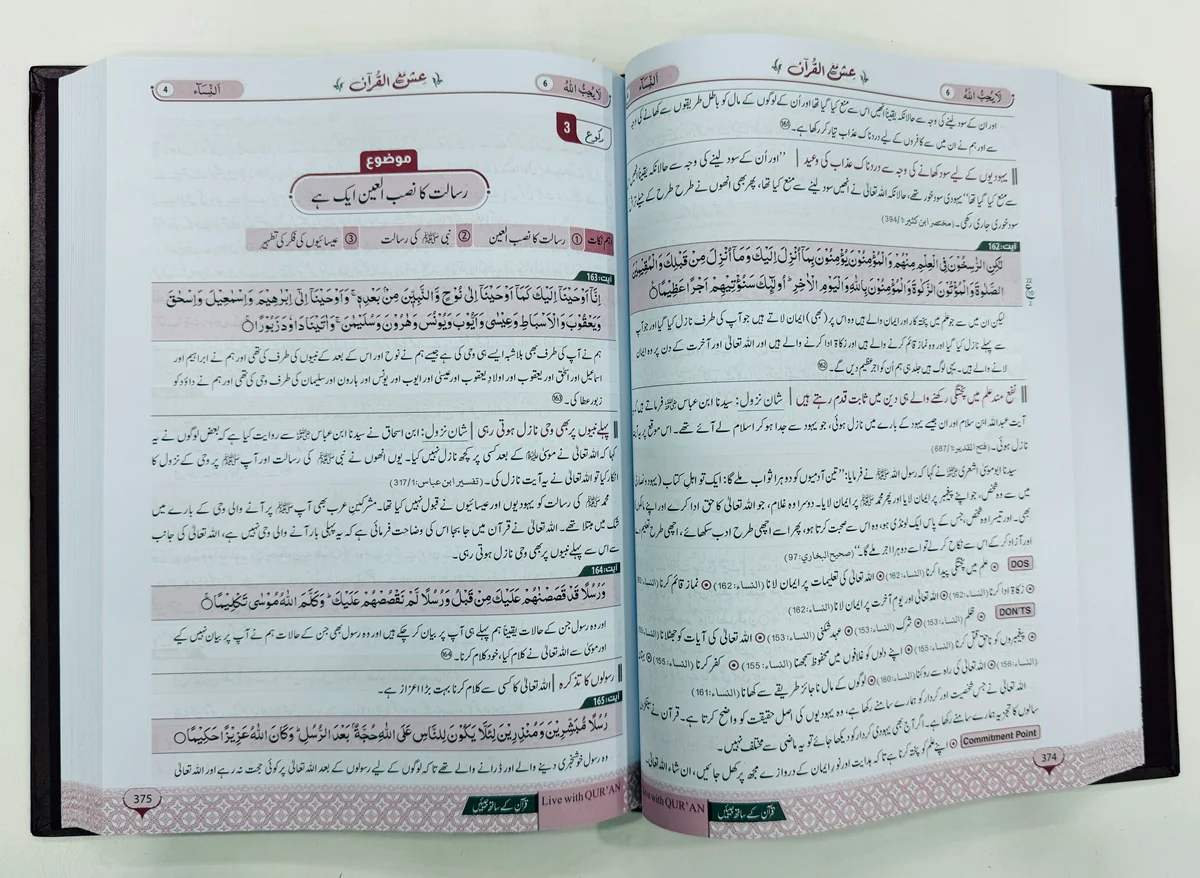 لَا یُحِبُّ اللّٰهُ 6
عشق القُرآن
اَلنِّسَآء
اور ان کے سود لینے کی وجہ سے حالانکہ یقیناً انھیں اس سے منع کیا گیا تھا اور اُن کے لوگوں کے مال کو باطل طریقوں سے کھانے کی وجہ
سے اور ہم نے ان میں سے کافروں کے لیے دردناک عذاب تیار کر رکھا ہے۔ 161
یہودیوں کے لیے سود کھانے کی وجہ سے دردناک عذاب کی وعید | "اور اُن کے سود لینے کی وجہ سے حالانکہ یقیناً انھیں
سے منع کیا گیا تھا" یہودی سود خور تھے، حالانکہ اللہ تعالیٰ نے انھیں سود لینے سے منع کیا تھا، پھر بھی انھوں نے طرح طرح کے حیلے
سود خوری جاری رکھی۔ (مختصر ابن کثیر: 394/1)
آیت: 162
لٰكِنِ الرّٰسِخُوْنَ فِی الْعِلْمِ مِنْهُمْ وَالْمُؤْمِنُوْنَ یُؤْمِنُوْنَ بِمَاۤ اُنْزِلَ اِلَیْكَ وَمَاۤ اُنْزِلَ مِنْ قَبْلِكَ وَالْمُقِیْمِیْنَ
الصَّلٰوةَ وَالْمُؤْتُوْنَ الزَّكٰوةَ وَالْمُؤْمِنُوْنَ بِاللّٰهِ وَالْیَوْمِ الْاٰخِرِ ؕ اُولٰٓىِٕكَ سَنُؤْتِیْهِمْ اَجْرًا عَظِیْمًا
لیکن ان میں سے جو علم میں پختہ کار اور ایمان والے ہیں وہ اس پر (بھی) ایمان لاتے ہیں جو آپ کی طرف نازل کیا گیا اور جو آپ
سے پہلے نازل کیا گیا اور وہ نماز قائم کرنے والے ہیں اور زکاۃ ادا کرنے والے ہیں اور اللہ تعالیٰ اور آخرت کے دن پر وہ ایمان
لانے والے ہیں۔ یہی لوگ ہیں جلد ہی ہم اُن کو اجر عظیم دیں گے۔ 162
نفع مند علم میں پختگی رکھنے والے ہی دین میں ثابت قدم رہتے ہیں | شانِ نزول: سیدنا ابن عباس ؓ فرماتے ہیں کہ
آیت عبداللہ ابن سلام اور ان جیسے یہود کے بارے میں نازل ہوئی، جو یہود سے جدا ہو کر اسلام لے آئے تھے۔ اس موقع پر یہ آیت
نازل ہوئی۔ (فتح القدیر: 687/1)
سیدنا ابو موسیٰ اشعری ؓ نے کہا کہ رسول اللہ ﷺ نے فرمایا: "تین آدمیوں کو دوہرا ثواب ملے گا: ایک تو اہل کتاب (یہود و نصاریٰ)
میں سے وہ شخص، جو اپنے پیغمبر پر ایمان لایا اور پھر محمد ﷺ پر ایمان لایا۔ دوسرا وہ غلام، جو اللہ تعالیٰ کا حق ادا کرے اور اپنے مالک
بھی۔ اور تیسرا وہ شخص، جس کے پاس ایک لونڈی ہو، وہ اس سے محبت کرتا ہو، پھر اسے اچھی طرح ادب سکھائے، اچھی طرح تعلیم دے
اور آزاد کر کے اس سے نکاح کر لے تو اسے دوہرا اجر ملے گا۔" (صحیح البخاری: 97)
DOS ● علم میں پختگی پیدا کرنا (النساء: 162) ● اللہ تعالیٰ کی تعلیمات پر ایمان لانا (النساء: 162) ● نماز قائم کرنا (النساء: 162)
● زکاۃ ادا کرنا (النساء: 162) ● اللہ تعالیٰ اور یوم آخرت پر ایمان لانا (النساء: 162)
DON'TS ● ظلم (النساء: 153) ● شرک (النساء: 153) ● عہد شکنی (النساء: 153) ● اللہ تعالیٰ کی آیات کو جھٹلانا
● پیغمبروں کو ناحق قتل کرنا (النساء: 155) ● اپنے دلوں کو غلافوں میں محفوظ سمجھنا (النساء: 155) ● کفر کرنا (النساء: 155)
(النساء: 156) ● اللہ تعالیٰ کی راہ سے روکنا (النساء: 160) ● لوگوں کے مال ناجائز طریقے سے کھانا (النساء: 161)
اللہ تعالیٰ نے جس شخصیت اور کردار کو ہمارے سامنے رکھا ہے، وہ یہودیوں کی اصل حقیقت کو واضح کرتا ہے۔ قرآن نے سینکڑوں
سالوں کا تجزیہ ہمارے سامنے رکھا ہے۔ اگر آج بھی یہودی کردار کو دیکھا جائے تو یہ ماضی سے مختلف نہیں۔
Commitment Point ● اپنے علم کو پختہ کرنا ہے تاکہ ہدایت اور نور ایمان کے دروازے مجھ پر کھل جائیں، ان شاء اللہ تعالیٰ۔
374
قرآن کے ساتھ جیئیں
Live with QUR'AN
لَا یُحِبُّ اللّٰهُ 6
عشق القُرآن
اَلنِّسَآء 4
رکوع 3
موضوع
رسالت کا نصب العین ایک ہے
اہم نکات 1 رسالت کا نصب العین 2 نبی ﷺ کی رسالت 3 عیسائیوں کی فکر کی تطہیر
آیت: 163
اِنَّاۤ اَوْحَیْنَاۤ اِلَیْكَ كَمَاۤ اَوْحَیْنَاۤ اِلٰی نُوْحٍ وَّالنَّبِیّٖنَ مِنْۢ بَعْدِهٖ ۚ وَاَوْحَیْنَاۤ اِلٰۤی اِبْرٰهِیْمَ وَاِسْمٰعِیْلَ وَاِسْحٰقَ
وَیَعْقُوْبَ وَالْاَسْبَاطِ وَعِیْسٰی وَاَیُّوْبَ وَیُوْنُسَ وَهٰرُوْنَ وَسُلَیْمٰنَ ۚ وَاٰتَیْنَا دَاوٗدَ زَبُوْرًا
ہم نے آپ کی طرف بھی بلاشبہ ایسے ہی وحی کی ہے جیسے ہم نے نوح اور اس کے بعد کے نبیوں کی طرف کی تھی اور ہم نے ابراہیم اور
اسماعیل اور اسحٰق اور یعقوب اور اولادِ یعقوب اور عیسیٰ اور ایوب اور یونس اور ہارون اور سلیمان کی طرف وحی کی تھی اور ہم نے داؤد کو
زبور عطا کی۔ 163
پہلے نبیوں پر بھی وحی نازل ہوتی رہی | شانِ نزول: ابن اسحاق نے سیدنا ابن عباس ؓ سے روایت کیا ہے کہ بعض لوگوں نے یہ
کہا کہ اللہ تعالیٰ نے موسیٰ علیہ السلام کے بعد کسی پر کچھ نازل نہیں کیا۔ یوں انھوں نے نبی ﷺ کی رسالت اور آپ ﷺ پر وحی کے نزول کا
انکار کیا تو اللہ تعالیٰ نے یہ آیت نازل کی۔ (تفسیر ابن عباس: 317/1)
محمد ﷺ کی رسالت کو یہودیوں اور عیسائیوں نے قبول نہیں کیا تھا۔ مشرکین عرب بھی آپ ﷺ پر آنے والی وحی کے بارے میں
شک میں مبتلا تھے۔ اللہ تعالیٰ نے قرآن میں جا بجا اس کی وضاحت فرمائی ہے کہ یہ پہلی بار آنے والی وحی نہیں ہے، اللہ تعالیٰ کی جانب
سے اس سے پہلے نبیوں پر بھی وحی نازل ہوتی رہی۔
آیت: 164
وَرُسُلًا قَدْ قَصَصْنٰهُمْ عَلَیْكَ مِنْ قَبْلُ وَرُسُلًا لَّمْ نَقْصُصْهُمْ عَلَیْكَ ؕ وَكَلَّمَ اللّٰهُ مُوْسٰی تَكْلِیْمًا
اور وہ رسول جن کے حالات یقیناً ہم پہلے ہی آپ پر بیان کر چکے ہیں اور وہ رسول بھی جن کے حالات ہم نے آپ پر بیان نہیں کیے
اور موسیٰ سے اللہ تعالیٰ نے کلام کیا، خود کلام کرنا۔ 164
رسولوں کا تذکرہ | اللہ تعالیٰ کا کسی سے کلام کرنا بہت بڑا اعزاز ہے۔
آیت: 165
رُسُلًا مُّبَشِّرِیْنَ وَمُنْذِرِیْنَ لِئَلَّا یَكُوْنَ لِلنَّاسِ عَلَی اللّٰهِ حُجَّةٌۢ بَعْدَ الرُّسُلِ ؕ وَكَانَ اللّٰهُ عَزِیْزًا حَكِیْمًا
وہ رسول خوشخبری دینے والے اور ڈرانے والے تھے تاکہ لوگوں کے لیے رسولوں کے بعد اللہ تعالیٰ پر کوئی حجت نہ رہے اور اللہ تعالیٰ
375
قرآن کے ساتھ جیئیں
Live with QUR'AN